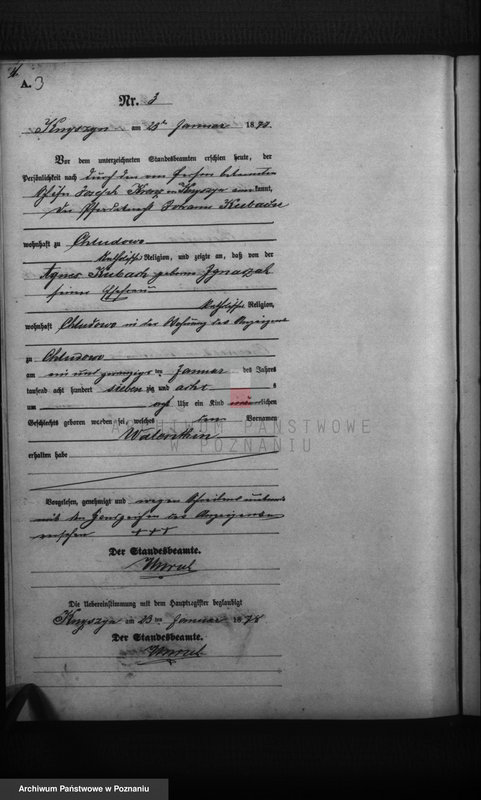 A. 3
Nr. 3
Knyszyn am 23ten Januar 1878.
Vor dem unterzeichneten Standesbeamten erschien heute, der
Persönlichkeit nach durch den von Person bekannten
Joseph kannt,
der Pferdeknecht Johann Kubach
wohnhaft zu Chludowo
katholischer Religion, und zeigte an, daß von der
Agnes Kubach geborne
seiner Ehefrau
katholischer Religion,
wohnhaft Chludowo in der Wohnung des Anzeigers
zu Chludowo
am ein und zwanzigsten Januar des Jahres
tausend acht hundert sieben zig und acht
um Uhr ein Kind männlichen
Geschlechts geboren worden sei, welches den Vornamen
Walenthin
erhalten habe
ARCHIWUM PAŃSTWOWE
W POZNANIU
Vorgelesen, genehmigt und wegen Schreibens
mit den Handzeichen des Anzeigenden
versehen +++
Der Standesbeamte.
Unrul
Die Uebereinstimmung mit dem Hauptregister beglaubigt
Knyszyn am 23ten Januar 1878
Der Standesbeamte.
Unrul
Archiwum Państwowe w Poznaniu